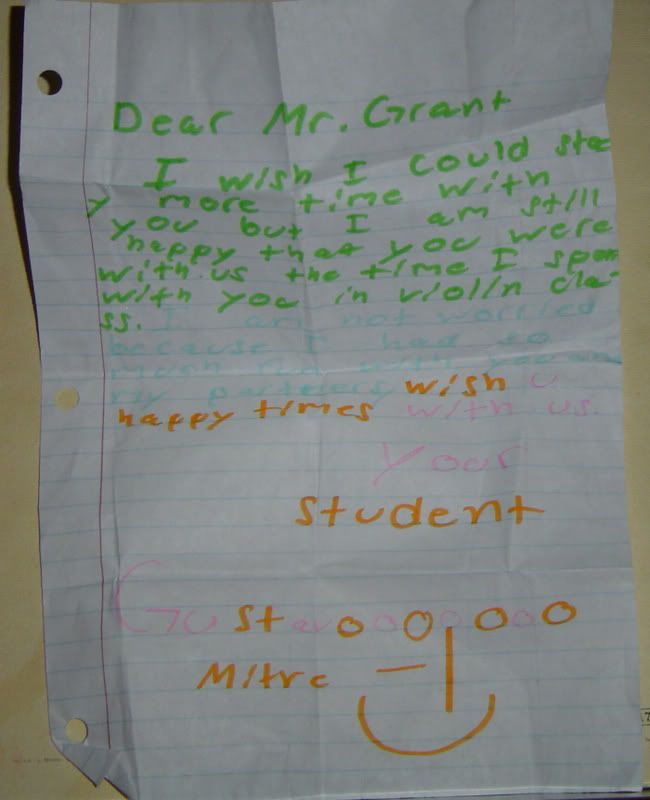 Dear Mr. Grant
I wish I could stee
y more time with
you but I am still
happy that you were
with us the time I spen
with you in violin cla-
ss. I am not worried
because I had so
much fun with you and
my partners wish u
happy times with us.
Your
student
Gustavo
Mitre